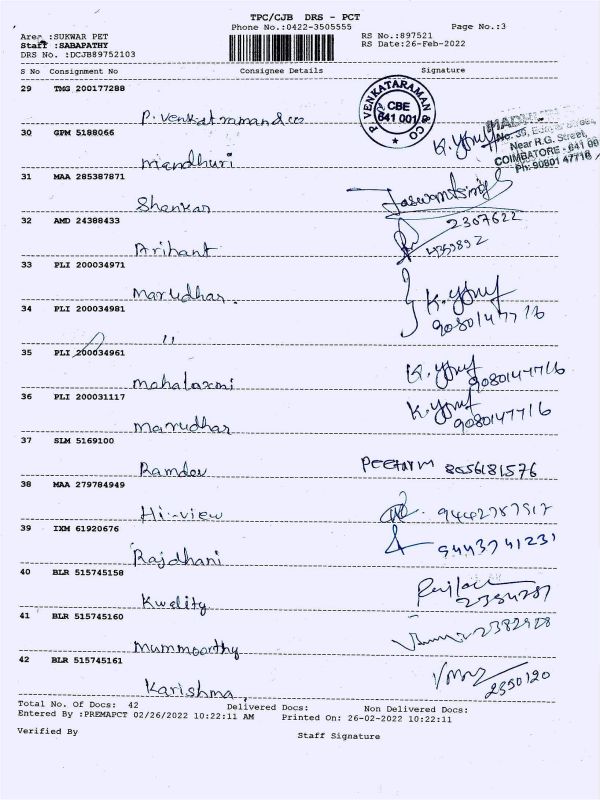 TPC/CJB DRS - PCT
Phone No.:0422-3505555 Page No.:3
Area :SUKWAR PET RS No.:897521
Staff :SABAPATHY RS Date:26-Feb-2022
DRS No. :DCJB89752103
S No Consignment No Consignee Details Signature
29 TMG 200177288
P. Venkatraman & co
P VENKATARAMAN & CO
CBE
641 001
30 GPM 5188066
K. Yusuf
Near R.G. Street,
COIMBATORE - 641 00
Ph: 90801 47716
Mandhuri
31 MAA 285387871
Jaswantsingh
Shankar
32 AMD 24388433
2307622
Arihant
4359892
33 PLI 200034971
Marudhar.
K. Yusuf
34 PLI 200034981
9080147716
"
35 PLI 200034961
Mahalaxmi K. Yusuf 9080147716
36 PLI 200031117
K. Yusuf
Marudhar 9080147716
37 SLM 5169100
Ramdev 8056181576
38 MAA 279784949
Hi-view
39 IXM 61920676
Rajdhani 9443741231
40 BLR 515745158
Kwality
41 BLR 515745160
Mummoorthy
42 BLR 515745161
Karishma 2350120
Total No. Of Docs: 42 Delivered Docs: Non Delivered Docs:
Entered By :PREMAPCT 02/26/2022 10:22:11 AM Printed On: 26-02-2022 10:22:11
Verified By Staff Signature